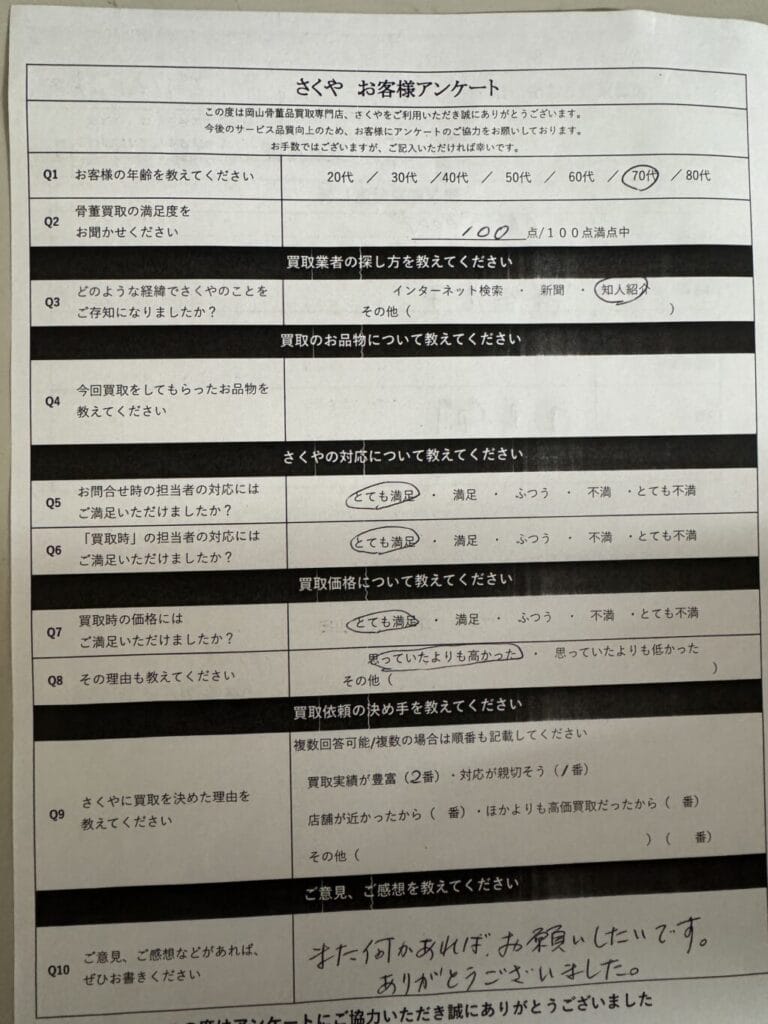 さくや お客様アンケート
この度は岡山骨董品買取専門店、さくやをご利用いただき誠にありがとうございます。
今後のサービス品質向上のため、お客様にアンケートのご協力をお願いしております。
お手数ではございますが、ご記入いただければ幸いです。
Q1 お客様の年齢を教えてください 20代 / 30代 /40代 / 50代 / 60代 / 70代 / 80代
Q2 骨董買取の満足度を
お聞かせください
100 点/100点満点中
買取業者の探し方を教えてください
Q3 どのような経緯でさくやのことを
ご存知になりましたか?
インターネット検索 ・ 新聞 ・ 知人紹介
その他( )
買取のお品物について教えてください
Q4 今回買取をしてもらったお品物を
教えてください
さくやの対応について教えてください
Q5 お問合せ時の担当者の対応には
ご満足いただけましたか?
とても満足 ・ 満足 ・ ふつう ・ 不満 ・とても不満
Q6 「買取時」の担当者の対応には
ご満足いただけましたか?
とても満足 ・ 満足 ・ ふつう ・ 不満 ・とても不満
買取価格について教えてください
Q7 買取時の価格には
ご満足いただけましたか?
とても満足 ・ 満足 ・ ふつう ・ 不満 ・とても不満
Q8 その理由も教えてください
思っていたよりも高かった ・ 思っていたよりも低かった
その他( )
買取依頼の決め手を教えてください
Q9 さくやに買取を決めた理由を
教えてください
複数回答可能/複数の場合は順番も記載してください
買取実績が豊富(2番)・対応が親切そう(1番)
店舗が近かったから( 番)・ほかよりも高価買取だったから( 番)
その他( )( 番)
ご意見、ご感想を教えてください
Q10 ご意見、ご感想などがあれば、
ぜひお書きください
また何かあれば、お願いしたいです。
ありがとうございました。
の度はアンケートにご協力いただき誠にありがとうございました